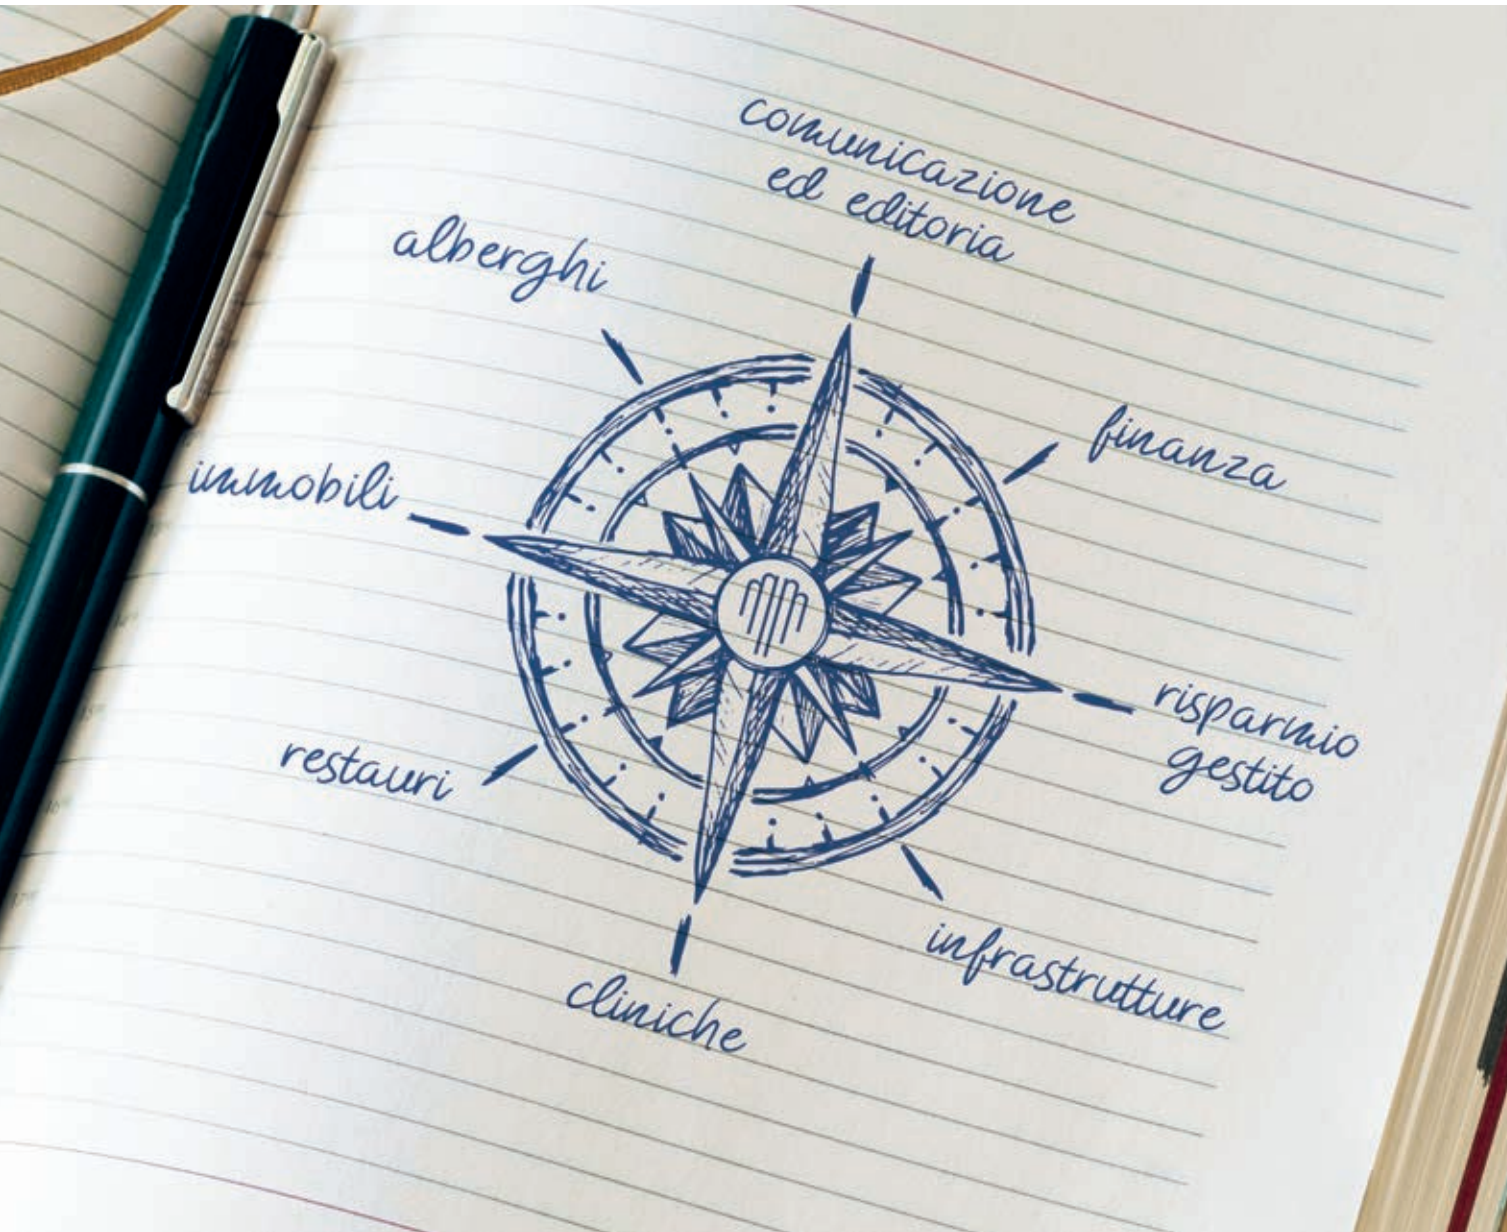 comunicazione
ed editoria
alberghi
finanza
immobili
risparmio
gestito
restauri
infrastrutture
cliniche